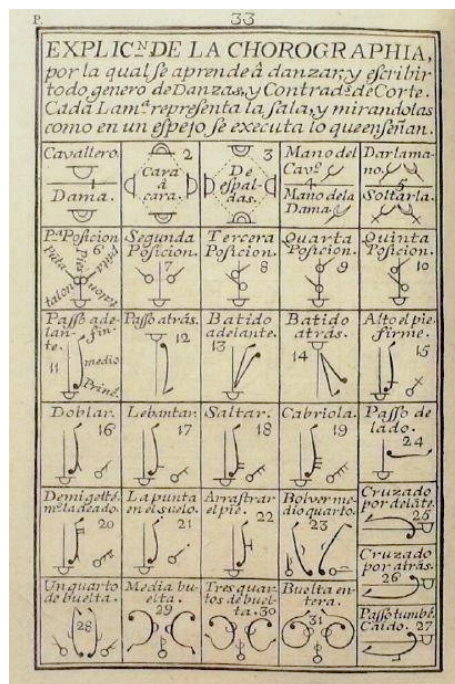 P. 33
EXPLIC.ᴺ DE LA CHOROGRAPHIA,
por la qual se aprende â danzar, y escribir
todo genero de Danzas, y Contrad.ˢ de Corte.
Cada Lam.ª representa la sala, y mirandolas
como en un espejo se executa lo que enseñan.
Cavallero.
1
Dama.
2
Cara
â
cara.
3
De
espal-
das.
Mano del
Cav.º
4
Mano de la
Dama
Dar la ma-
no.
5
Soltarla.
P.ª Posicion
6
Pies
punta
punta
talon
talon
Segunda
Posicion.
7
Tercera
Posicion.
8
Quarta
Posicion.
9
Quinta
Posicion.
10
Passo ade-
lan-
te.
fin.
11
medio
Princ.
Passo atrás.
12
Batido
adelante.
13
Batido
atrás.
14
Alto el pie
firme.
15
Doblar.
16
Lebantar.
17
Saltar.
18
Cabriola.
19
Passo de
lado.
24
ladeado.
20
La punta
en el suelo.
21
Arrastrar
el pie.
22
Bolver me-
dio quarto.
23
Cruzado
por delãte.
25
Cruzado
por atrás.
26
Un quarto
de buelta.
28
Media bu-
elta.
29
Tres quar-
tos de buel-
ta. 30
Buelta en-
tera.
31
Passo tumbé
Caido. 27